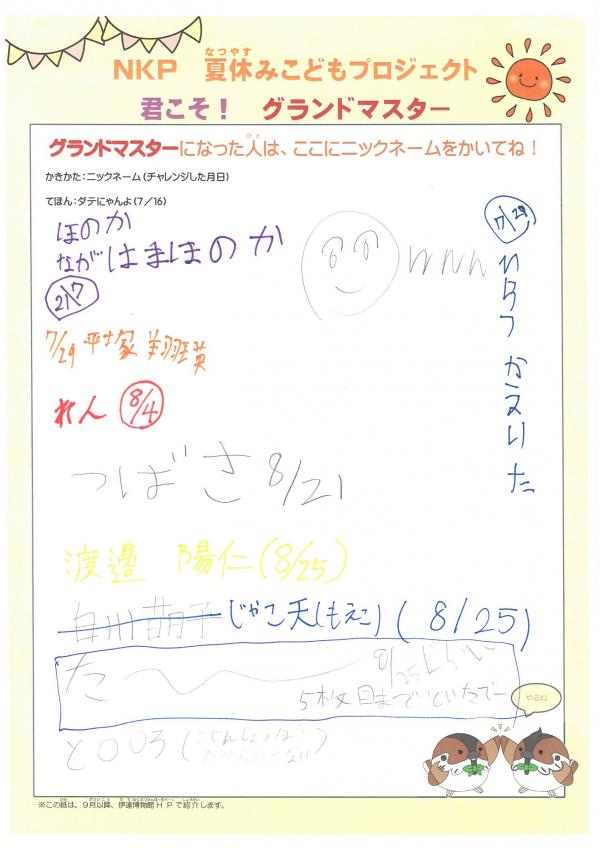 NKP 夏休みこどもプロジェクト
なつやす
君こそ！ グランドマスター
グランドマスターになった人は、ここにニックネームをかいてね！
ひと
かきかた：ニックネーム（チャレンジした月日）
てほん：ダテにゃんよ（7／16）
ほのか
ながはまほのか
7/29
7/29 平塚
れん 8/4
つばさ 8/21
渡邉 陽仁(8/25)
じゃこ天(もえこ) (8/25)
た〜
8/25じらい
5枚目まで といたでー
やるね
と〇〇３(こじんじょうほう
だからかかない)
※この紙は、９月以降、伊達博物館ＨＰで紹介します。